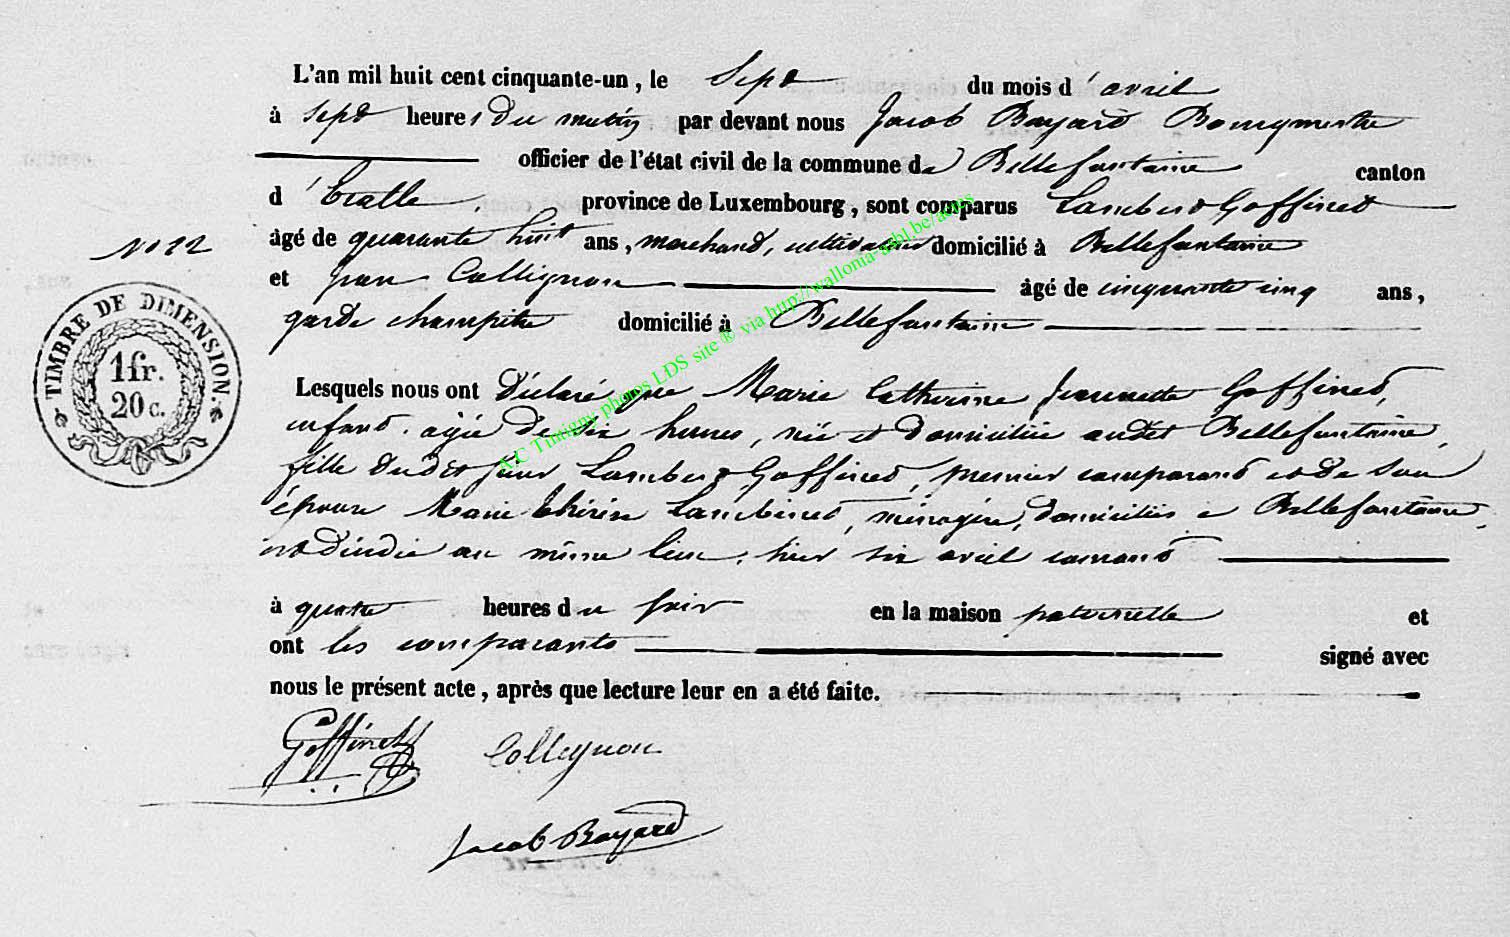 L'an mil huit cent cinquante-un, le Sept du mois d'avril
à sept heures du matin par devant nous Jacob Bayard Bourgmestre
officier de l'état civil de la commune de Bellefontaine canton
d'Etalle, province de Luxembourg, sont comparus Lambert Goffinet
N° 22
âgé de quarante huit ans, marchand, cultivateur domicilié à Bellefontaine
et Jean Collignon âgé de cinquante cinq ans,
garde champêtre domicilié à Bellefontaine
TIMBRE DE DIMENSION.
1 fr.
20 c.
Lesquels nous ont déclaré que Marie Catherine Jeannette Goffinet,
enfant âgée de six heures, née et domiciliée audit Bellefontaine,
fille dudit sieur Lambert Goffinet, premier comparant et de son
épouse Marie Thérèse Lambinet, ménagère, domiciliés à Bellefontaine,
est décédée au même lieu, hier six avril courant
à quatre heures du soir en la maison paternelle et
ont les comparants signé avec
nous le présent acte, après que lecture leur en a été faite.
Goffinet Collignon
Jacob Bayard
A.C Tintigny photos LDS site ® via http://wallonia-asbl.be/actes